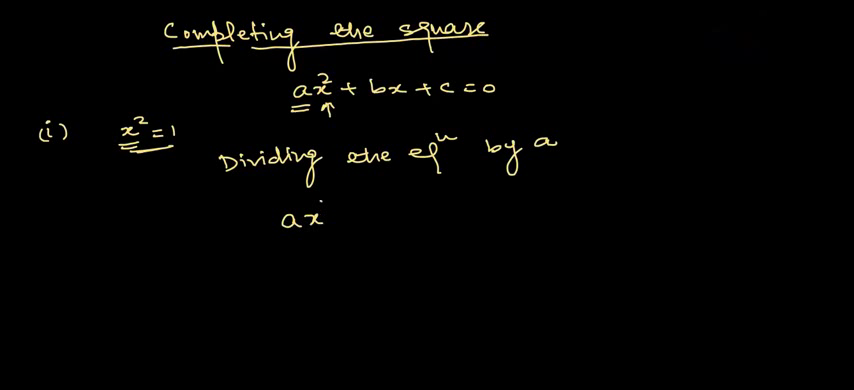 Completing the square
ax² + bx + c = 0
(i) x² = 1
Dividing the eqⁿ by a
ax